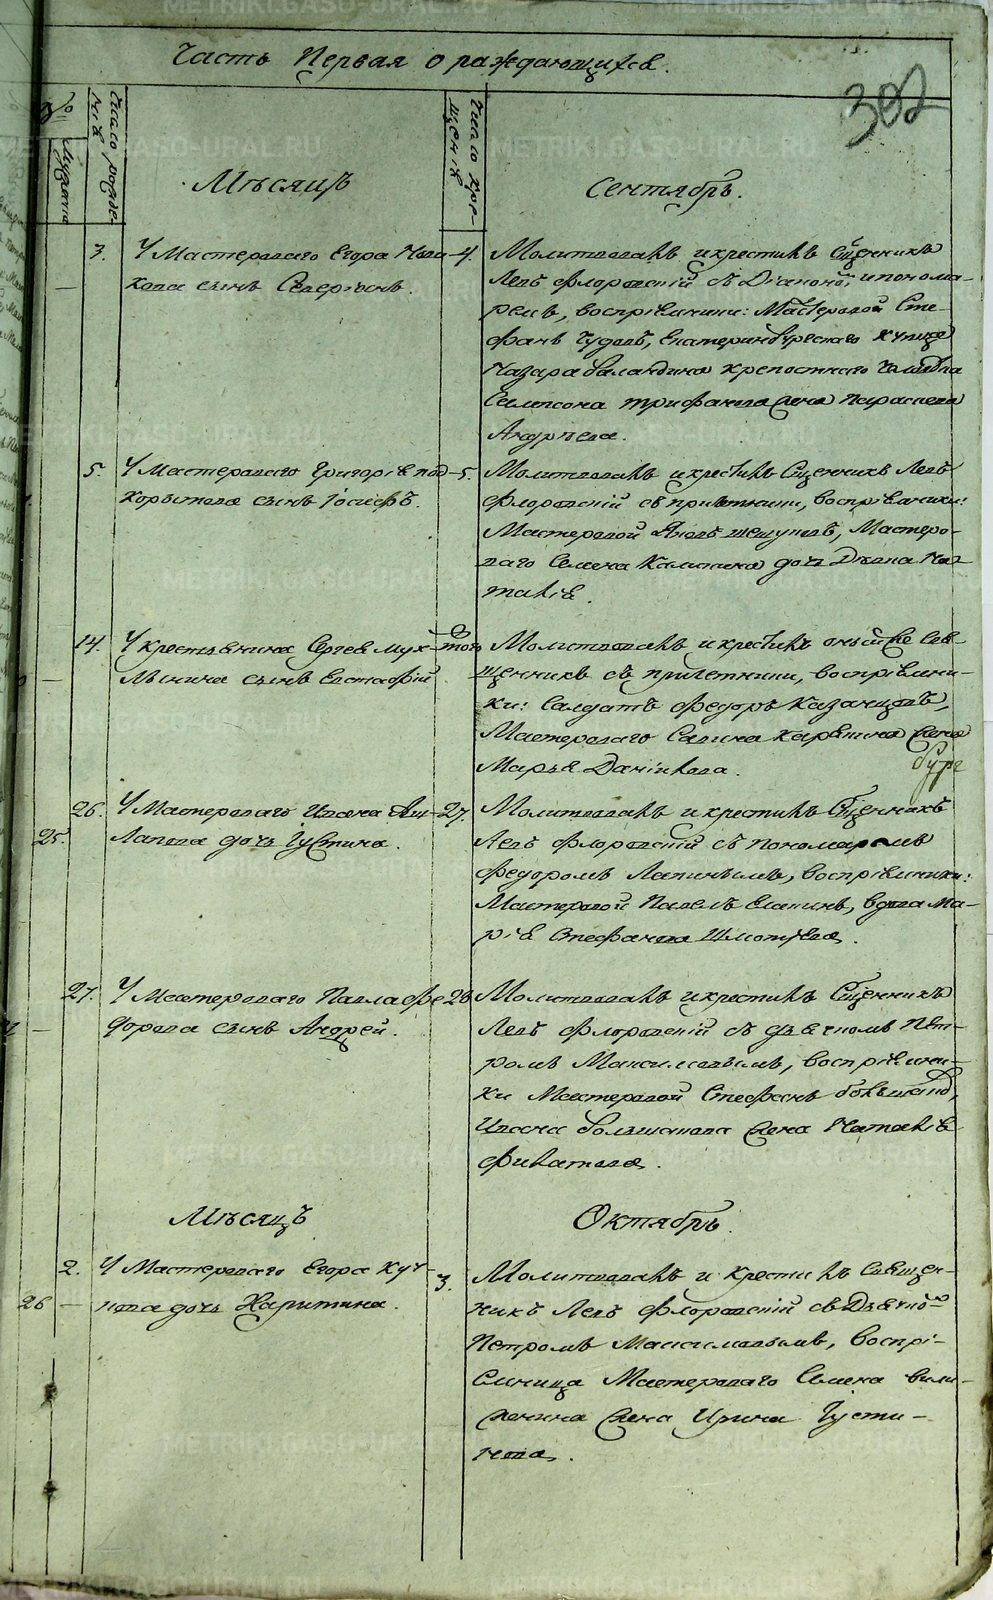 Часть Первая о раждающихся.
302
№
Число рождения
Число крещения
Мѣсяцъ
Сентябрь.
3. У Мастероваго Егора
кова сынъ Северіянъ.
4. Молитвовалъ и крестилъ Сщенникъ
Левъ Флоровскій съ Діакономъ и понома-
ремъ, воспріемники: Мастеровой Сте-
фанъ Чудовъ, Екатеринбургскаго купца
Назара Баландина крепостнаго человѣка
Сампсона Трифанова жена Параскева
Андрѣева.
5. У Мастероваго Григорія под-
корытова сынъ Іосифъ.
5. Молитвовалъ и крестилъ Сщенникъ Левъ
Флоровскій съ причетники, воспріемники:
Мастеровой Яковъ Шешуковъ, Мастеро-
ваго Семена Калинина дочь Дѣвка На-
талія.
14. У крестьянина Сергея Мух-
лынина сынъ Евстафій
Молитвовалъ и крестилъ оный же Свя-
щенникъ съ причетники, воспріемни-
ки: Салдатъ Федоръ Казанцовъ,
Мастероваго Савина жена
Марья Данилова.
26. У Мастероваго Ивана
25. Лапова дочь Іустина.
27. Молитвовалъ и крестилъ Сщенникъ
Левъ Флоровскій съ пономаремъ
Федоромъ Лапинымъ, воспріемники:
Мастеровой Павелъ Елакинъ, вдова Ма-
рія Стефанова
27. У Мастероваго Павла Фе-
дорова сынъ Андрей.
28. Молитвовалъ и крестилъ Сщенникъ
Левъ Флоровскій съ дьячкомъ Пет-
ромъ Максимовымъ, воспріемни-
ки Мастеровой Стефанъ Большаковъ,
Ивана Большакова жена Наталія
Филатова.
Мѣсяцъ
Октябрь.
2. У Мастероваго Егора
26 — кова дочь Харитина.
3. Молитвовалъ и крестилъ Священ-
никъ Левъ Флоровскій съ Дьячкомъ
Петромъ Максимовымъ, воспрі-
емница Мастероваго Семена
жена Ирина Іусти-
нова.
METRIKI.GASO-URAL.RU